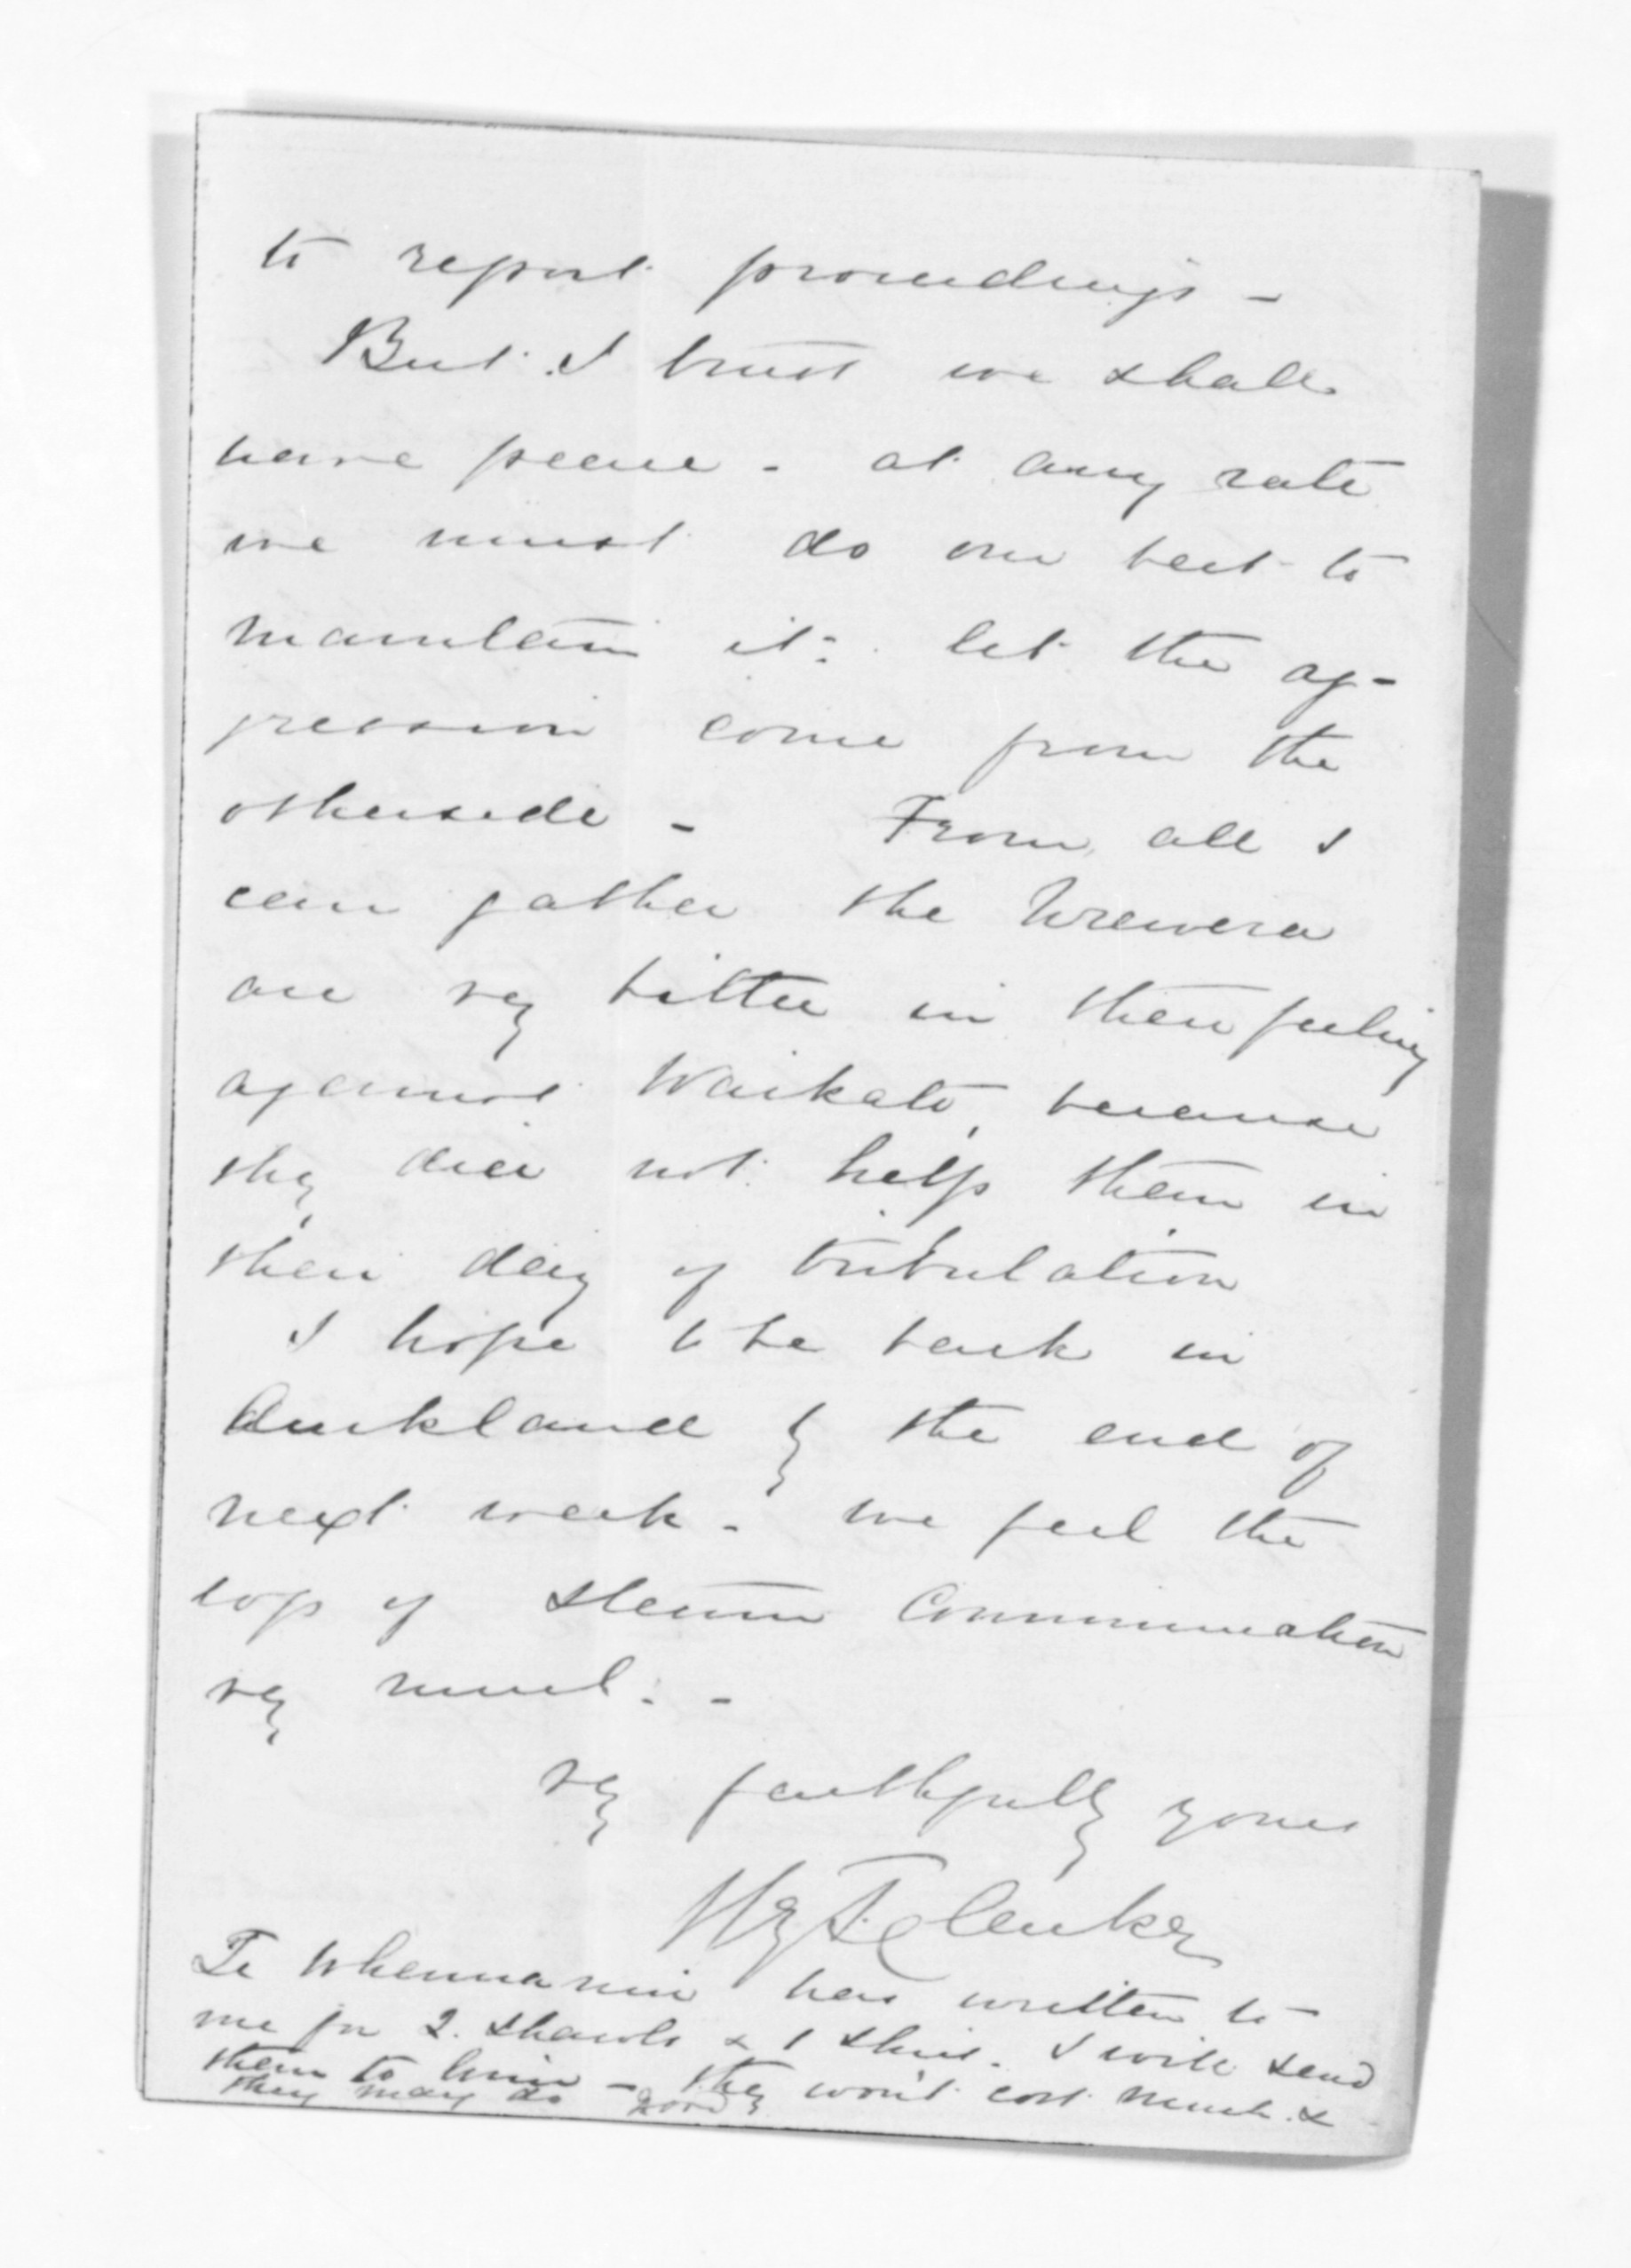 to report proceedings -
But I trust we shall
have peace - at any rate
we must do our best to
maintain it: let the ag-
gression come from the
otherside - From all I
can gather the Urewera
are vy bitter in their feeling
against Waikato, because
they did not help them in
their day of tribulation
I hope to be back in
Auckland by the end of
next week - we feel the
loss of steam Communication
vy much. -
vy faithfully yours
Hy T. Clarke
Te Whenuanui has written to
me for 2. shawls & 1 shirt. I will send
them to him - they won't cost much &
they may do good